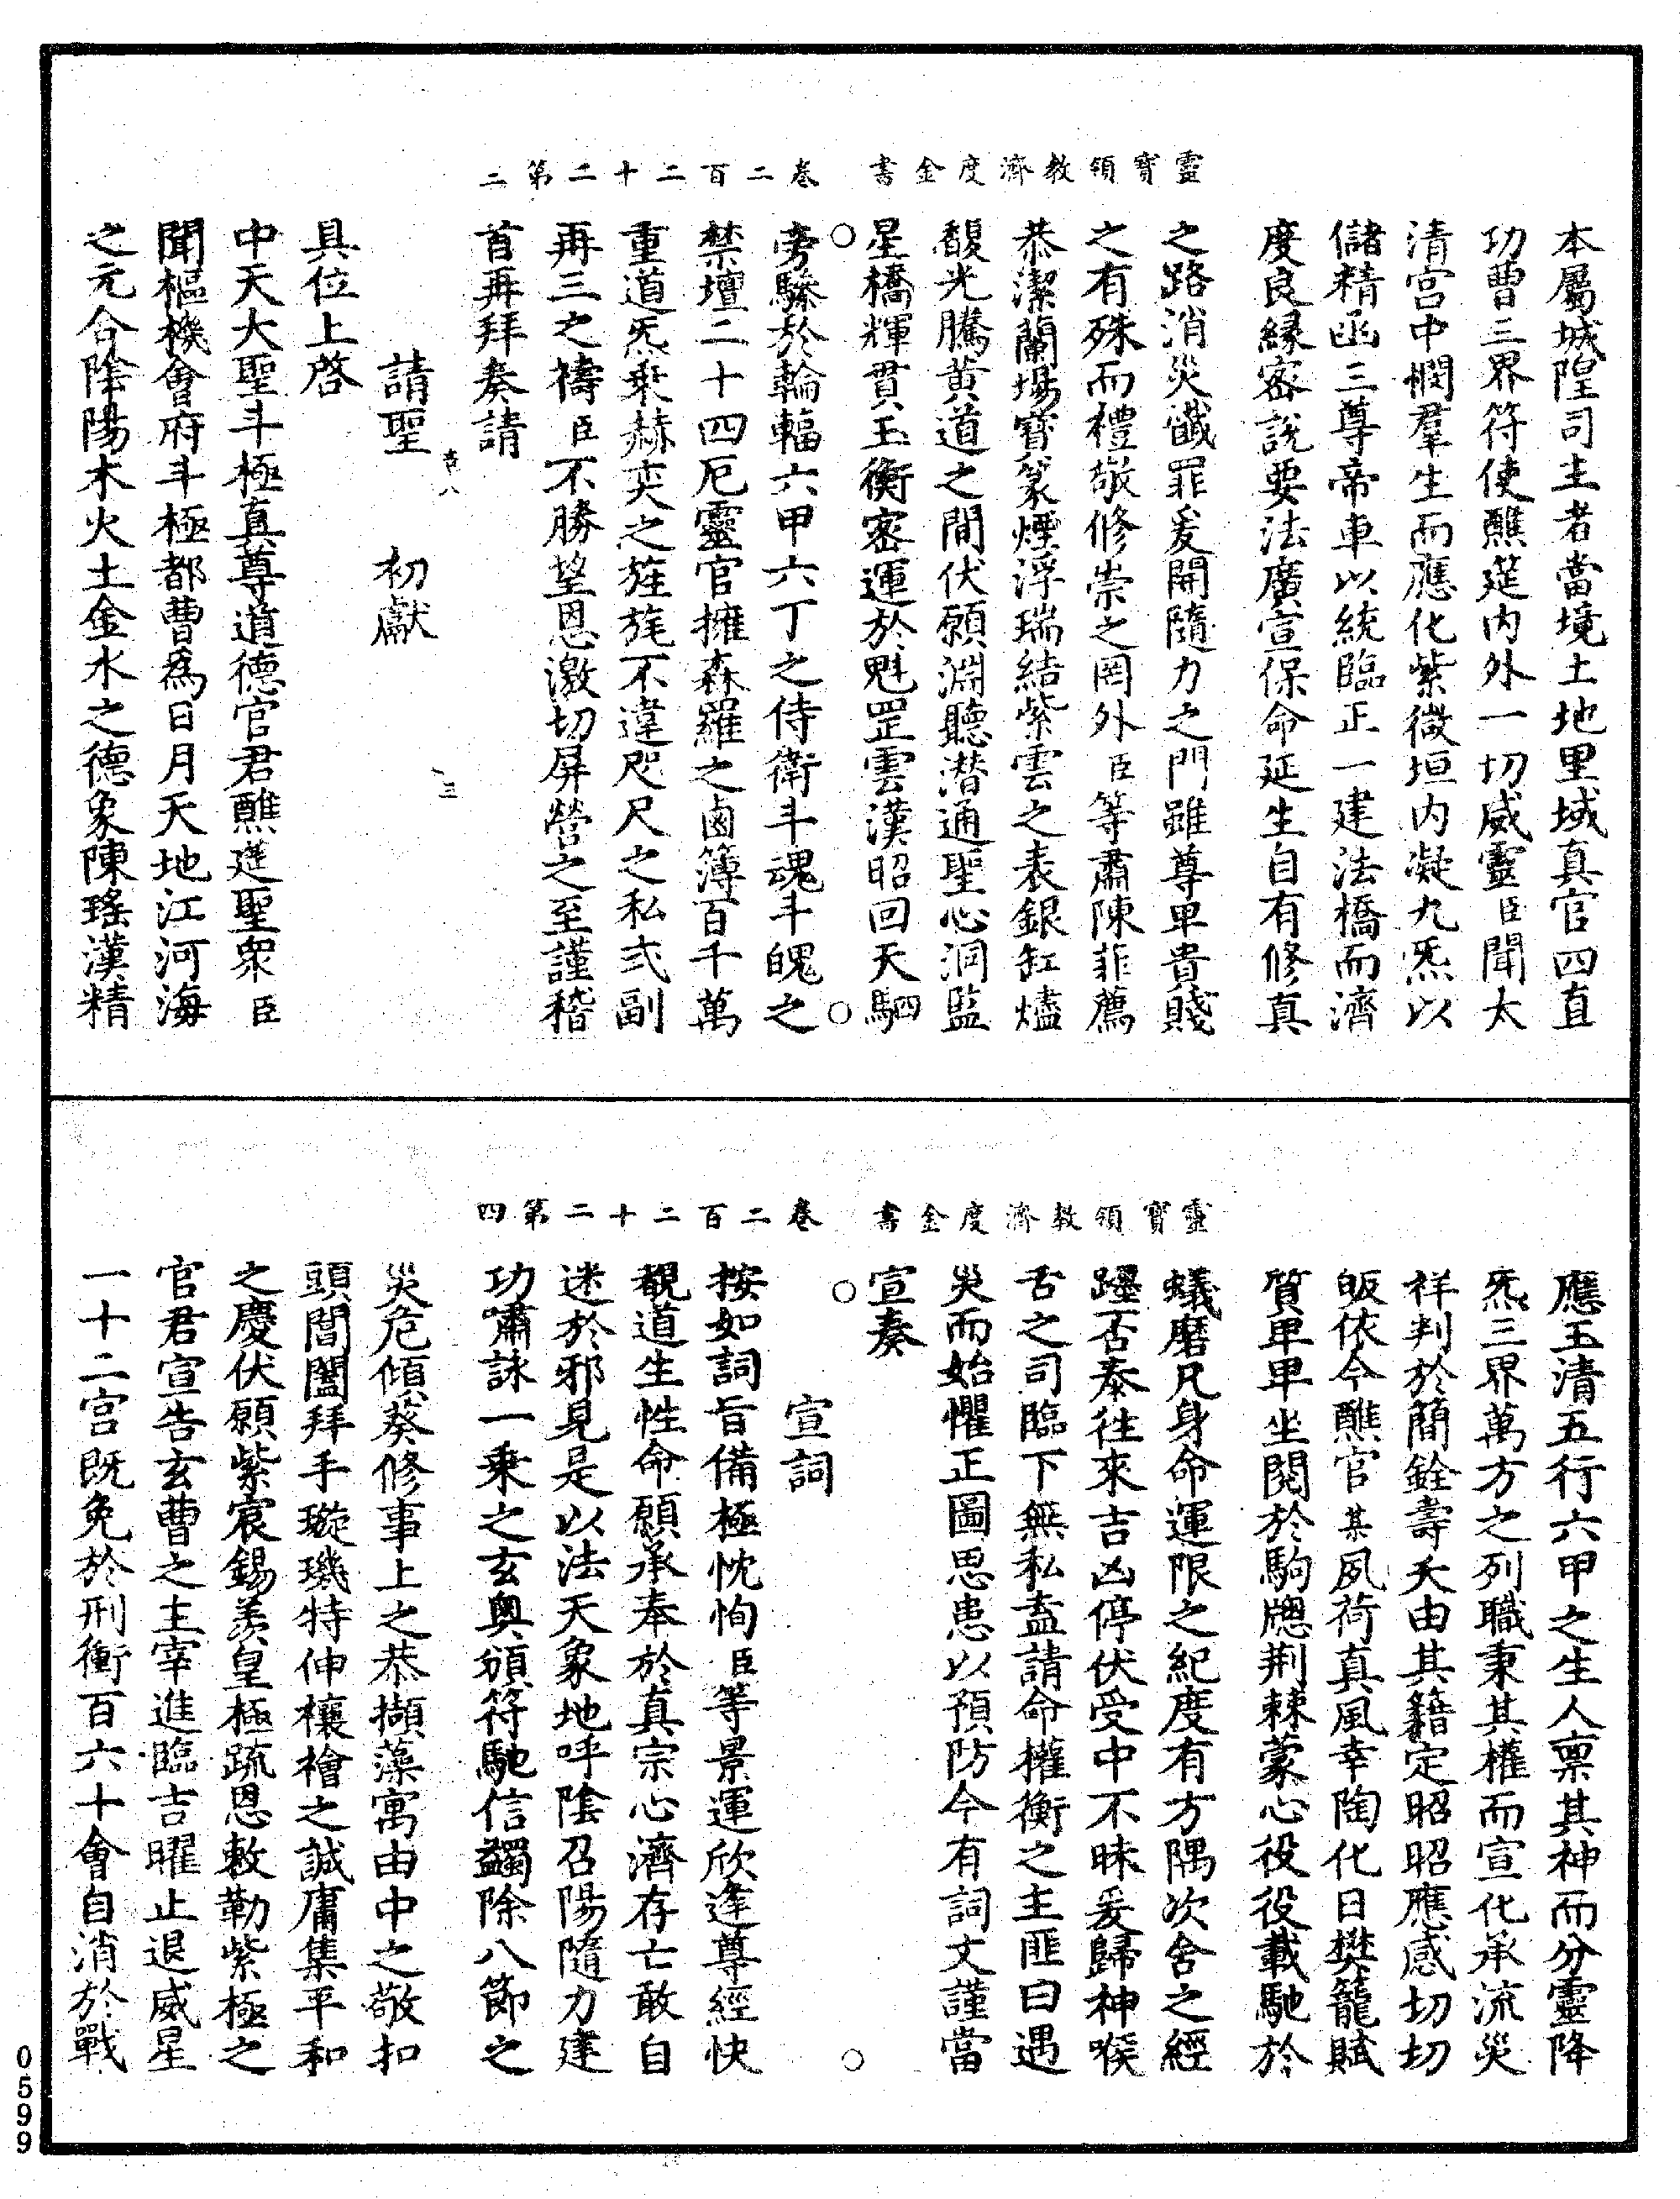 本屬城隍司主者當境土地里域真官四直
功曹三界符使醮筵内外一切威靈臣聞太
清宫中憫羣生而應化紫微垣内凝九炁以
儲精函三尊帝車以統臨正一建法橋而濟
度良縁密說要法廣宣保命延生自有修真
之路消災懺罪爰開隨力之門雖尊卑貴賤
之有殊而禮敬修崇之罔外臣等肅陳菲薦
恭潔蘭場寳篆煙浮瑞結紫雲之表銀缸燼
馥光騰黄道之間伏願淵聽潜通聖心洞監
星橋輝貫玉衡密運於魁罡雲漢昭回天駟
靈寳領教濟度金書
卷二百二十二第二
旁驂於輪輻六甲六丁之侍衛斗魂斗魄之
禁壇二十四厄靈官擁森羅之鹵簿百千萬
重道炁乗赫奕之旌旄不違咫尺之私式副
再三之禱臣不勝望恩激切屏營之至謹稽
首再拜奏請
請聖 初獻
具位上啓
中天大聖斗極真尊道德官君醮筵聖衆臣
聞樞機會府斗極都曹爲日月天地江河海
之元合陰陽木火土金水之德象陳瑤漢精
應玉清五行六甲之生人禀其神而分靈降
炁三界萬方之列職秉其權而宣化承流災
祥判於簡銓壽夭由其籍定昭昭應感切切
皈依今醮官某夙荷真風幸陶化日樊籠賦
質卑卑坐閱於駒牕荆棘蒙心役役載馳於
蟻磨凡身命運限之紀度有方隅次舍之經
躔否泰往來吉凶停伏受中不昧爰歸神喉
舌之司臨下無私盍請命權衡之主匪曰遇
災而始懼正圖思患以預防今有詞文謹當
宣奏
靈寳領教濟度金書
卷二百二十二第四
宣詞
按如詞旨備極忱恂臣等景運欣逢尊經快
覩道生性命願承奉於真宗心濟存亡敢自
迷於邪見是以法天象地呼陰召陽隨力建
功嘯詠一乗之玄奥頒符馳信蠲除八節之
災危傾葵修事上之恭擷藻寓由中之敬扣
頭閶闔拜手璇璣特伸禳禬之誠庸集平和
之慶伏願紫宸錫羡皇極䟽恩敕勒紫極之
官君宣告玄曹之主宰進臨吉曜止退威星
一十二宫既免於刑衝百六十會自消於戰
0599